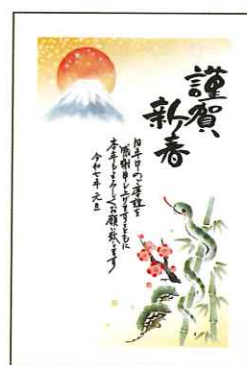 謹賀
新春
旧年中のご厚誼を
感謝申し上げますとともに
本年もよろしくお願い致します
令和七年 元旦